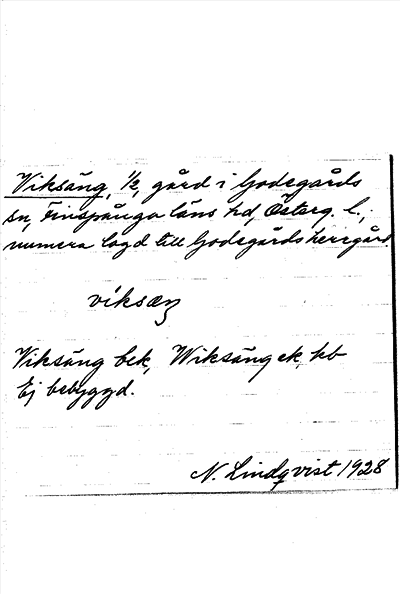 Viksäng, 1/2, gård i Godegårds
sn, Finspånga läns hd, Österg. l.,
numera lagd till Godegårds herrgård.
víksæŋ
Viksäng bek, Wiksäng ek, kb
Ej bebyggd.
N. Lindqvist 1928